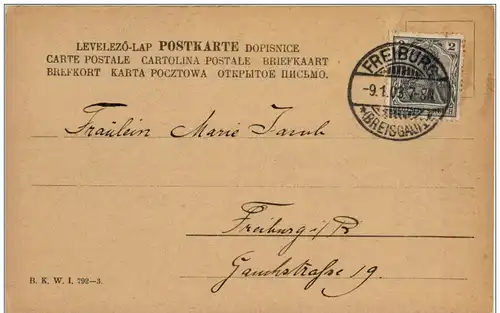 LEVELEZŐ-LAP POSTKARTE DOPISNICE
CARTE POSTALE CARTOLINA POSTALE BRIEFKAART
BREFKORT KARTA POCZTOWA ОТКРЫТОЕ ПИСЬМО.
2
FREIBURG
-9.1.03.7-8N.
*(BREISGAU)1*
Fräulein Marie Jacob
Freiburg i/B
Gauchstraße 19.
B. K. W. I. 792-3.